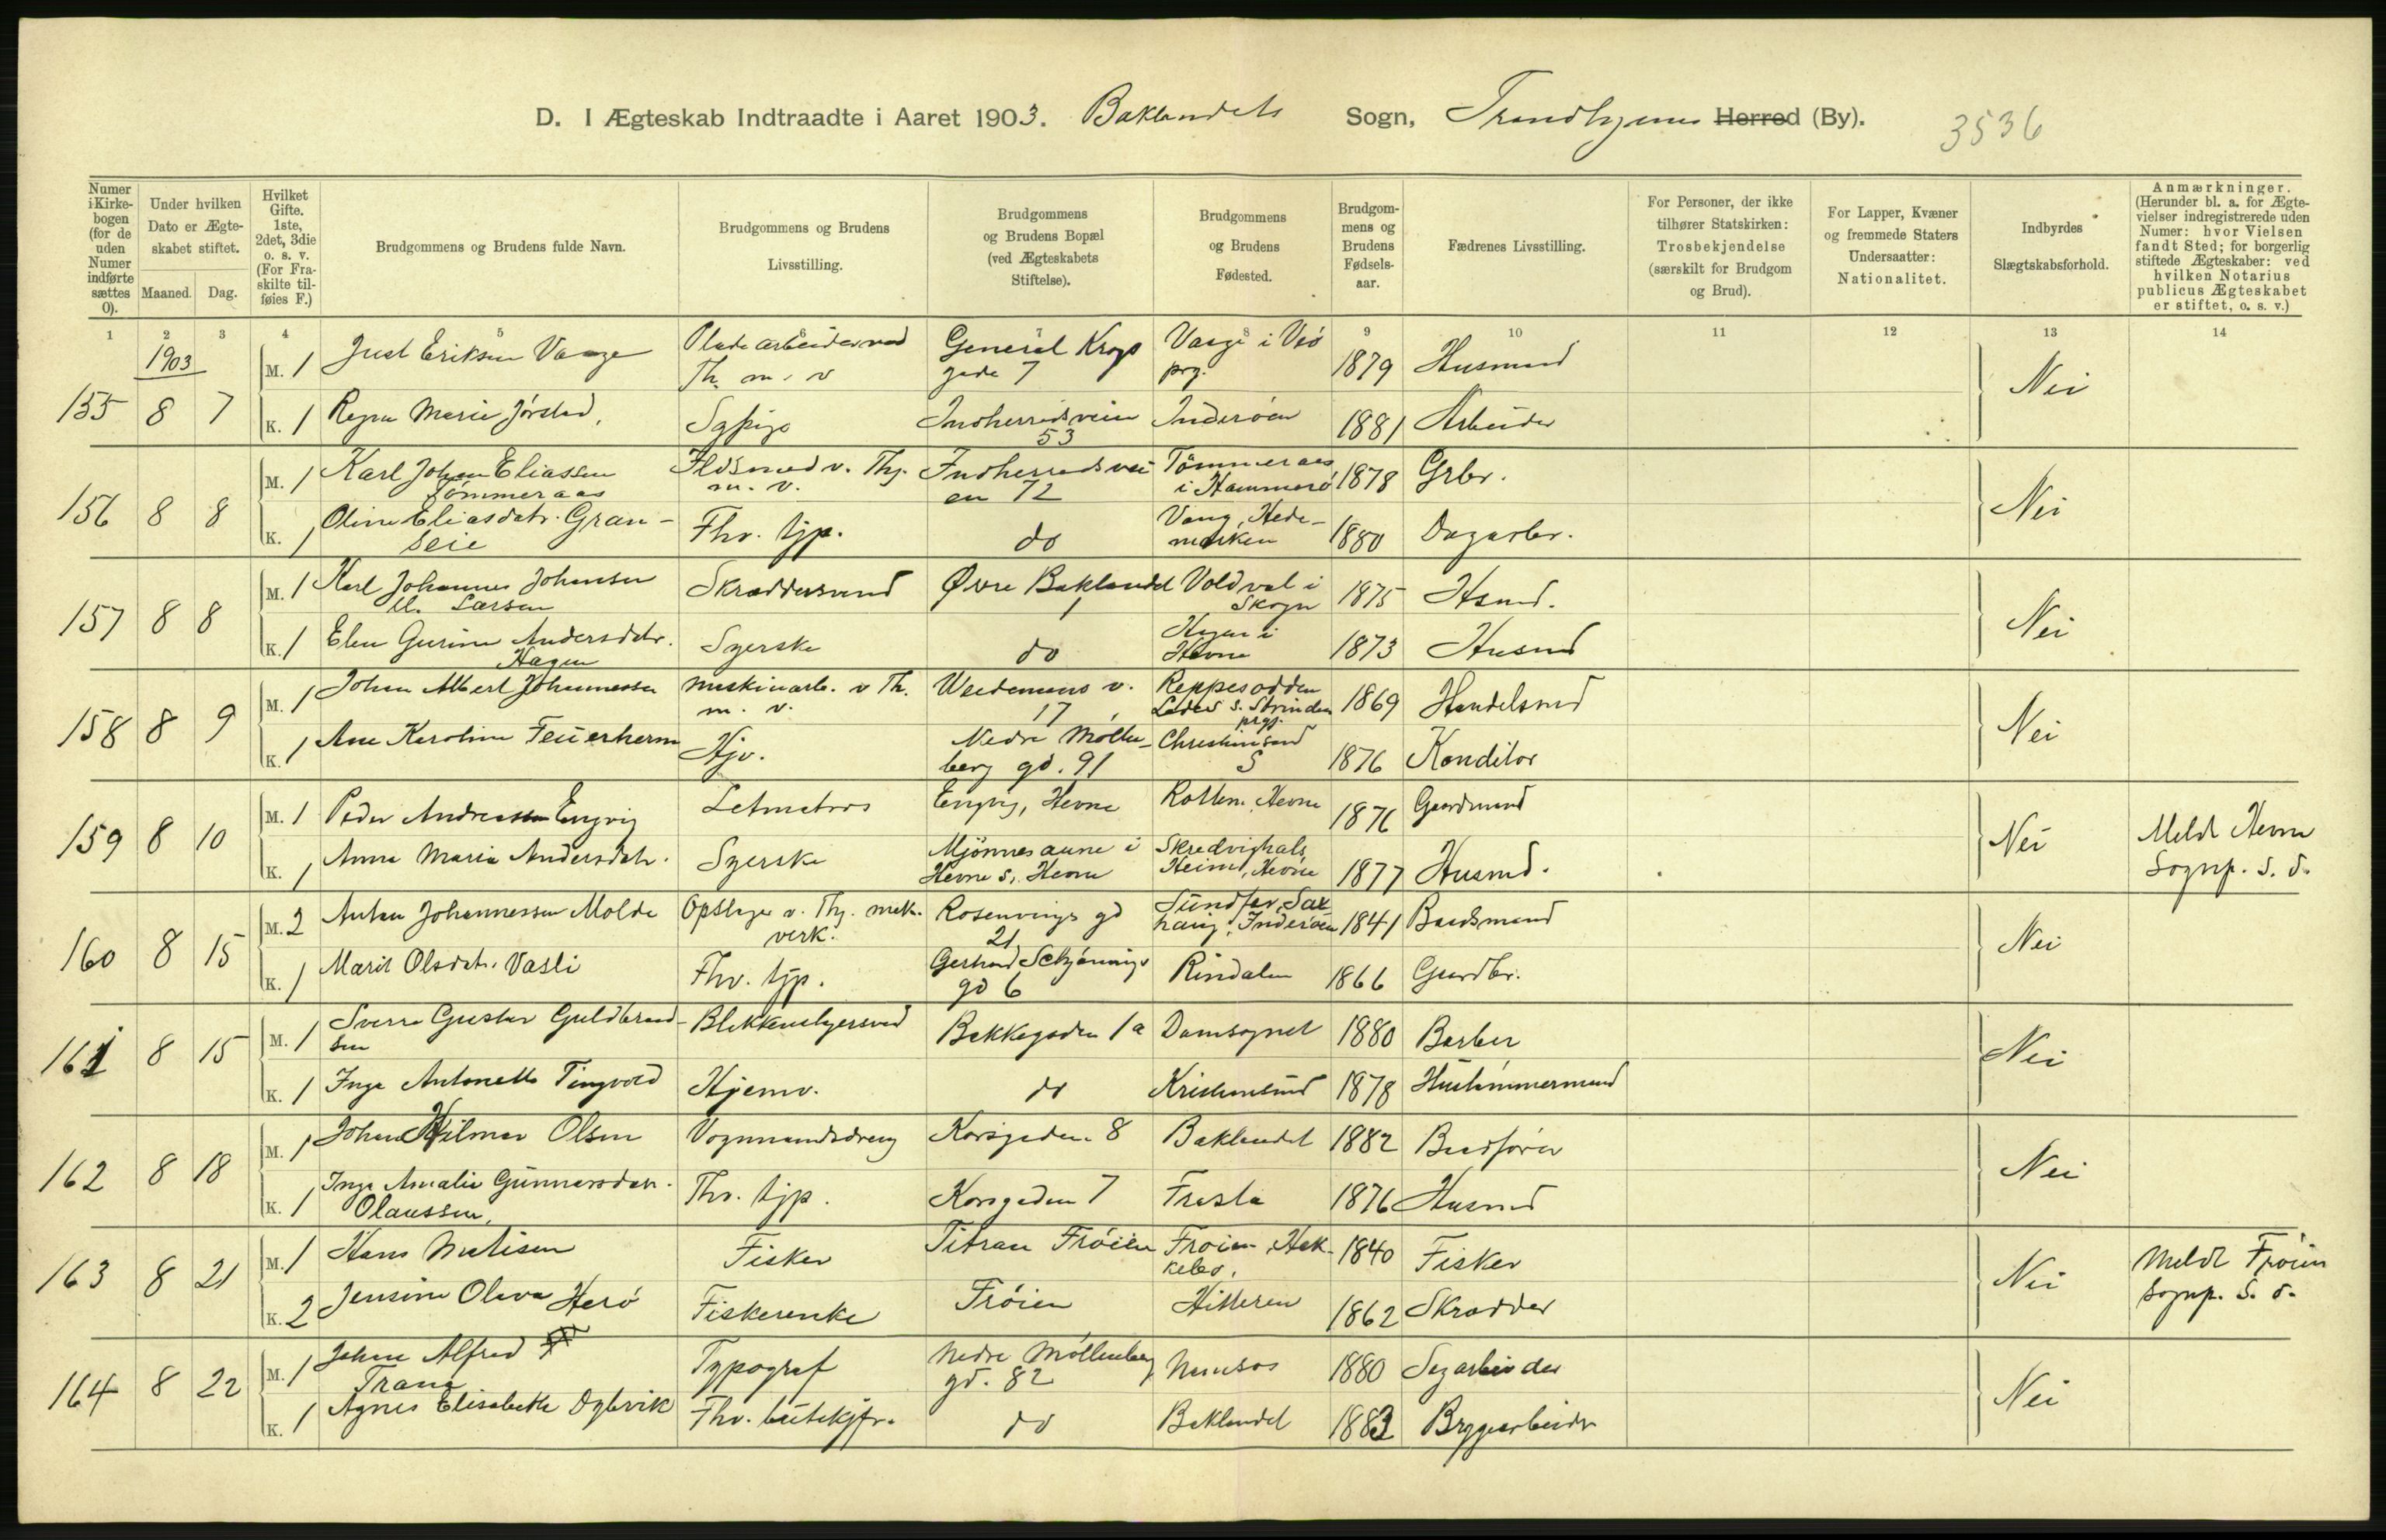 D. I Ægteskab Indtraadte i Aaret 1903. Baklandets Sogn, Trondhjems Herred (By). 3536
Numer i Kirkebogen (for de uden Numer indførte sættes 0).
Under hvilken Dato er Ægteskabet stiftet.
Maaned. Dag.
Hvilket Gifte. 1ste, 2det, 3die o. s. v. (For Fraskilte tilføies F.)
Brudgommens og Brudens fulde Navn.
Brudgommens og Brudens Livsstilling.
Brudgommens og Brudens Bopæl (ved Ægteskabets Stiftelse).
Brudgommens og Brudens Fødested.
Brudgommens og Brudens Fødselsaar.
Fædrenes Livsstilling.
For Personer, der ikke tilhører Statskirken: Trosbekjendelse (særskilt for Brudgom og Brud).
For Lapper, Kvæner og fremmede Staters Undersaatter: Nationalitet.
Indbyrdes Slægtskabsforhold.
Anmærkninger. (Herunder bl. a. for Ægtevielser indregistrerede uden Numer: hvor Vielsen fandt Sted; for borgerlig stiftede Ægteskaber: ved hvilken Notarius publicus Ægteskabet er stiftet, o. s. v.)
1 2 3 4 5 6 7 8 9 10 11 12 13 14
1903
155 8 7 M. 1 Just Eriksen Vaage Pladearbeider ved Th. m. v General Krogs gade 7 Vaage i Veö prg. 1879 Husmand Nei
K. 1 Regna Marie Jörstad, Sypige Indherredsveien 53 Inderöen 1881 Arbeider
156 8 8 M. 1 Karl Johan Eliassen Tömmeraas Ildsmed v. Thj. m. v. Indherredsveien 72 Tömmeraas i Hammerö 1878 Grbr. Nei
K. 1 Oline Eliasdatr. Granseie Fhv. tjp. do Vang, Hedemarken 1880 Dagarbr.
157 8 8 M. 1 Karl Johannes Johansen Larsen Skræddersvend Øvre Baklandet 1 Voldval i Skogn 1875 Hsmd. Nei
K. 1 Elen Gurine Andersdatr. Hagen Syerske do Hagen i Hevne 1873 Husmd
158 8 9 M. 1 Johan Albert Johannessen Maskinarb. v Th. m. v. Weidemans v. 17 Reppesodden Lades s. Strinden prgj. 1869 Handelsmd Nei
K. 1 Ane Karoline Feuerherm Hjv. Nedre Möllenberg gd. 91 Christiansand S 1876 Konditor
159 8 10 M. 1 Peder Andreassen Engvig Letmatros Engvig, Hevne Rotten, Hevne 1876 Gaardmand Nei Meldt Hevne Sognp. S. d.
K. 1 Anna Maria Andersdatr. Syerske Mjönnesaune i Hevne s. Hevne Skredvighals Heim, Hevne 1877 Husmd.
160 8 15 M. 2 Anton Johannessen Molde Opslager v. Thj. mek. verk. Rosenvinges gd 21 Sundfær, Saxhaug, Inderöen 1841 Baadsmand Nei
K. 1 Marit Olsdatr. Vasli Fhv. tjp. Gerhard Schjönnings gd 6 Rindalen 1866 Gaardbr.
161 8 15 M. 1 Sverre Gustav Guldbrandsen Blikkenslagersvend Bakkegaden 1a Domsognet 1880 Barber Nei
K. 1 Inga Antonette Tingvold Hjemv. do Kristiansund 1878 Hustömmermand
162 8 18 M. 1 Johan Hilmar Olsen Vognmandsdreng Korsgaden 8 Baklandet 1882 Baadförer Nei
K. 1 Inga Amalie Gunnarsdatr. Olaussen, Fhv. tjp. Korsgaden 7 Frosta 1876 Husmd
163 8 21 M. 1 Hans Matisen Fisker Titran Fröien Fröien, Hekkelö, 1840 Fisker Nei Meldt Fröien Sognp. S. d.
K. 2 Jensine Oleva Herö Fiskerenke Fröien Hitteren 1862 Skrædder
164 8 22 M. 1 Johan Alfred Trana Typograf Nedre Möllenberg gd. 82 Namsos 1880 Sagarbeider Nei
K. 1 Agnes Elisabeth Dybvik Fhv. butikjfr. do Baklandet 1883 Bryggearbeider